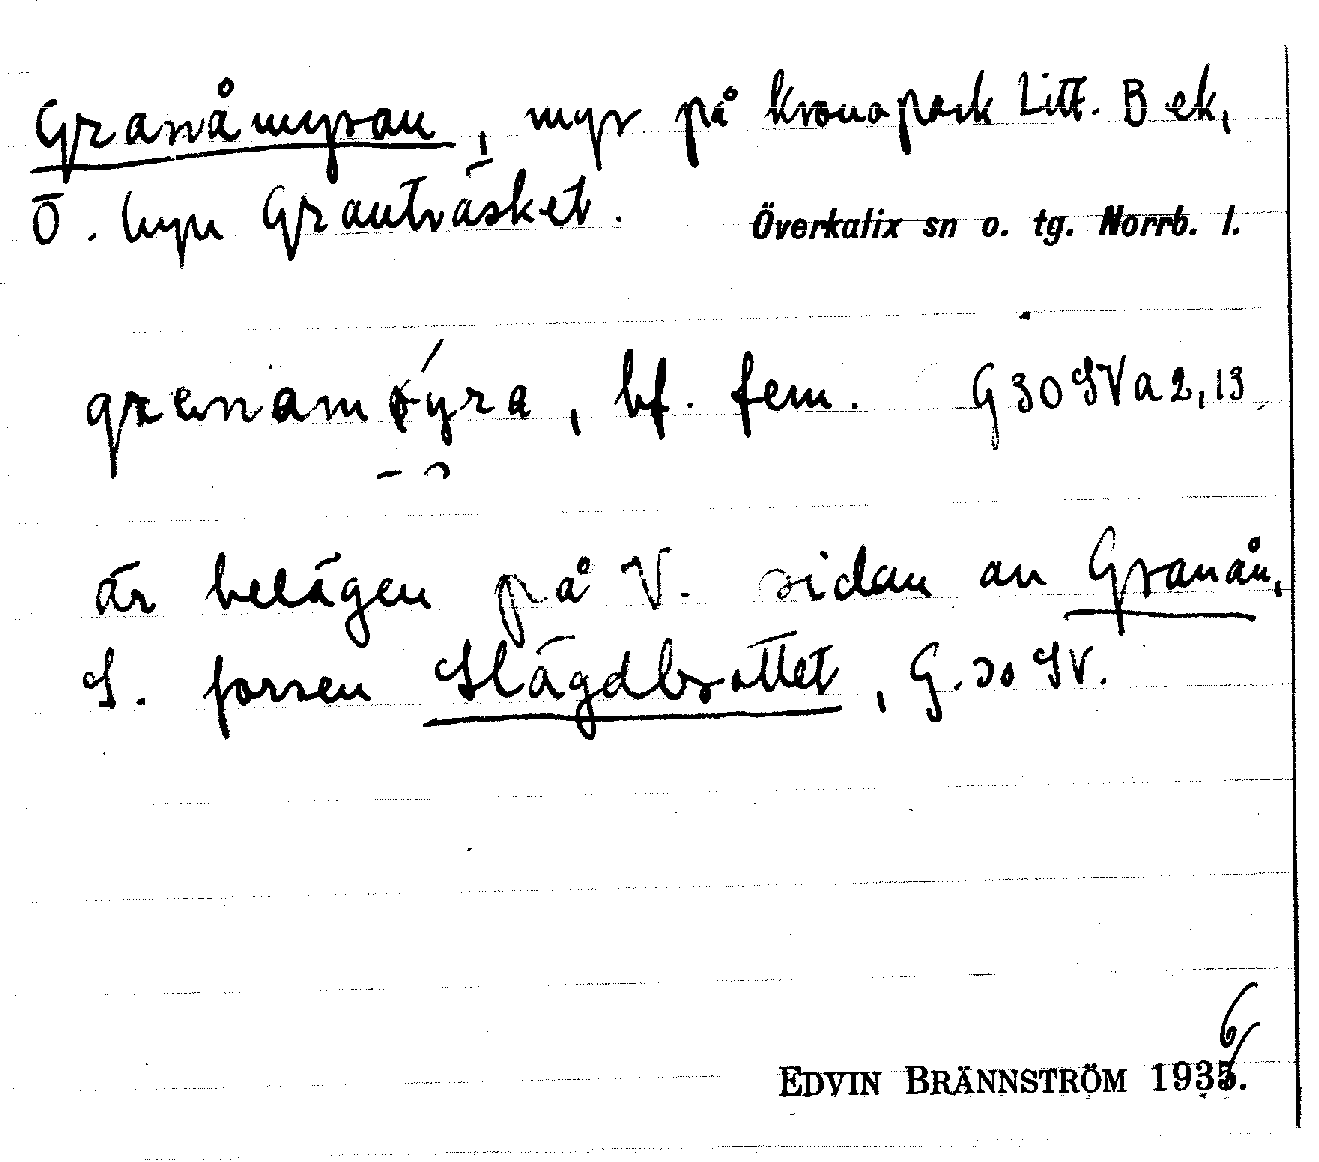 Granåmyran, myr på kronopark Litt. B ek,
Ö. byn Granträsket. Överkalix sn o. tg. Norrb. l.
bf. fem. G 30 SV a 2, 13
är belägen på V. sidan av Granån,
S. forsen Slägdbrottet, G. 30 SV.
6
EDVIN BRÄNNSTRÖM 1935.